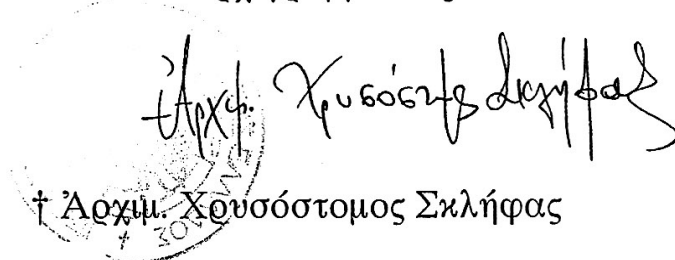 †Ἀρχιμ. Χρυσόστομος Σκλήφας
† Ἀρχιμ. Χρυσόστομος Σκλήφας